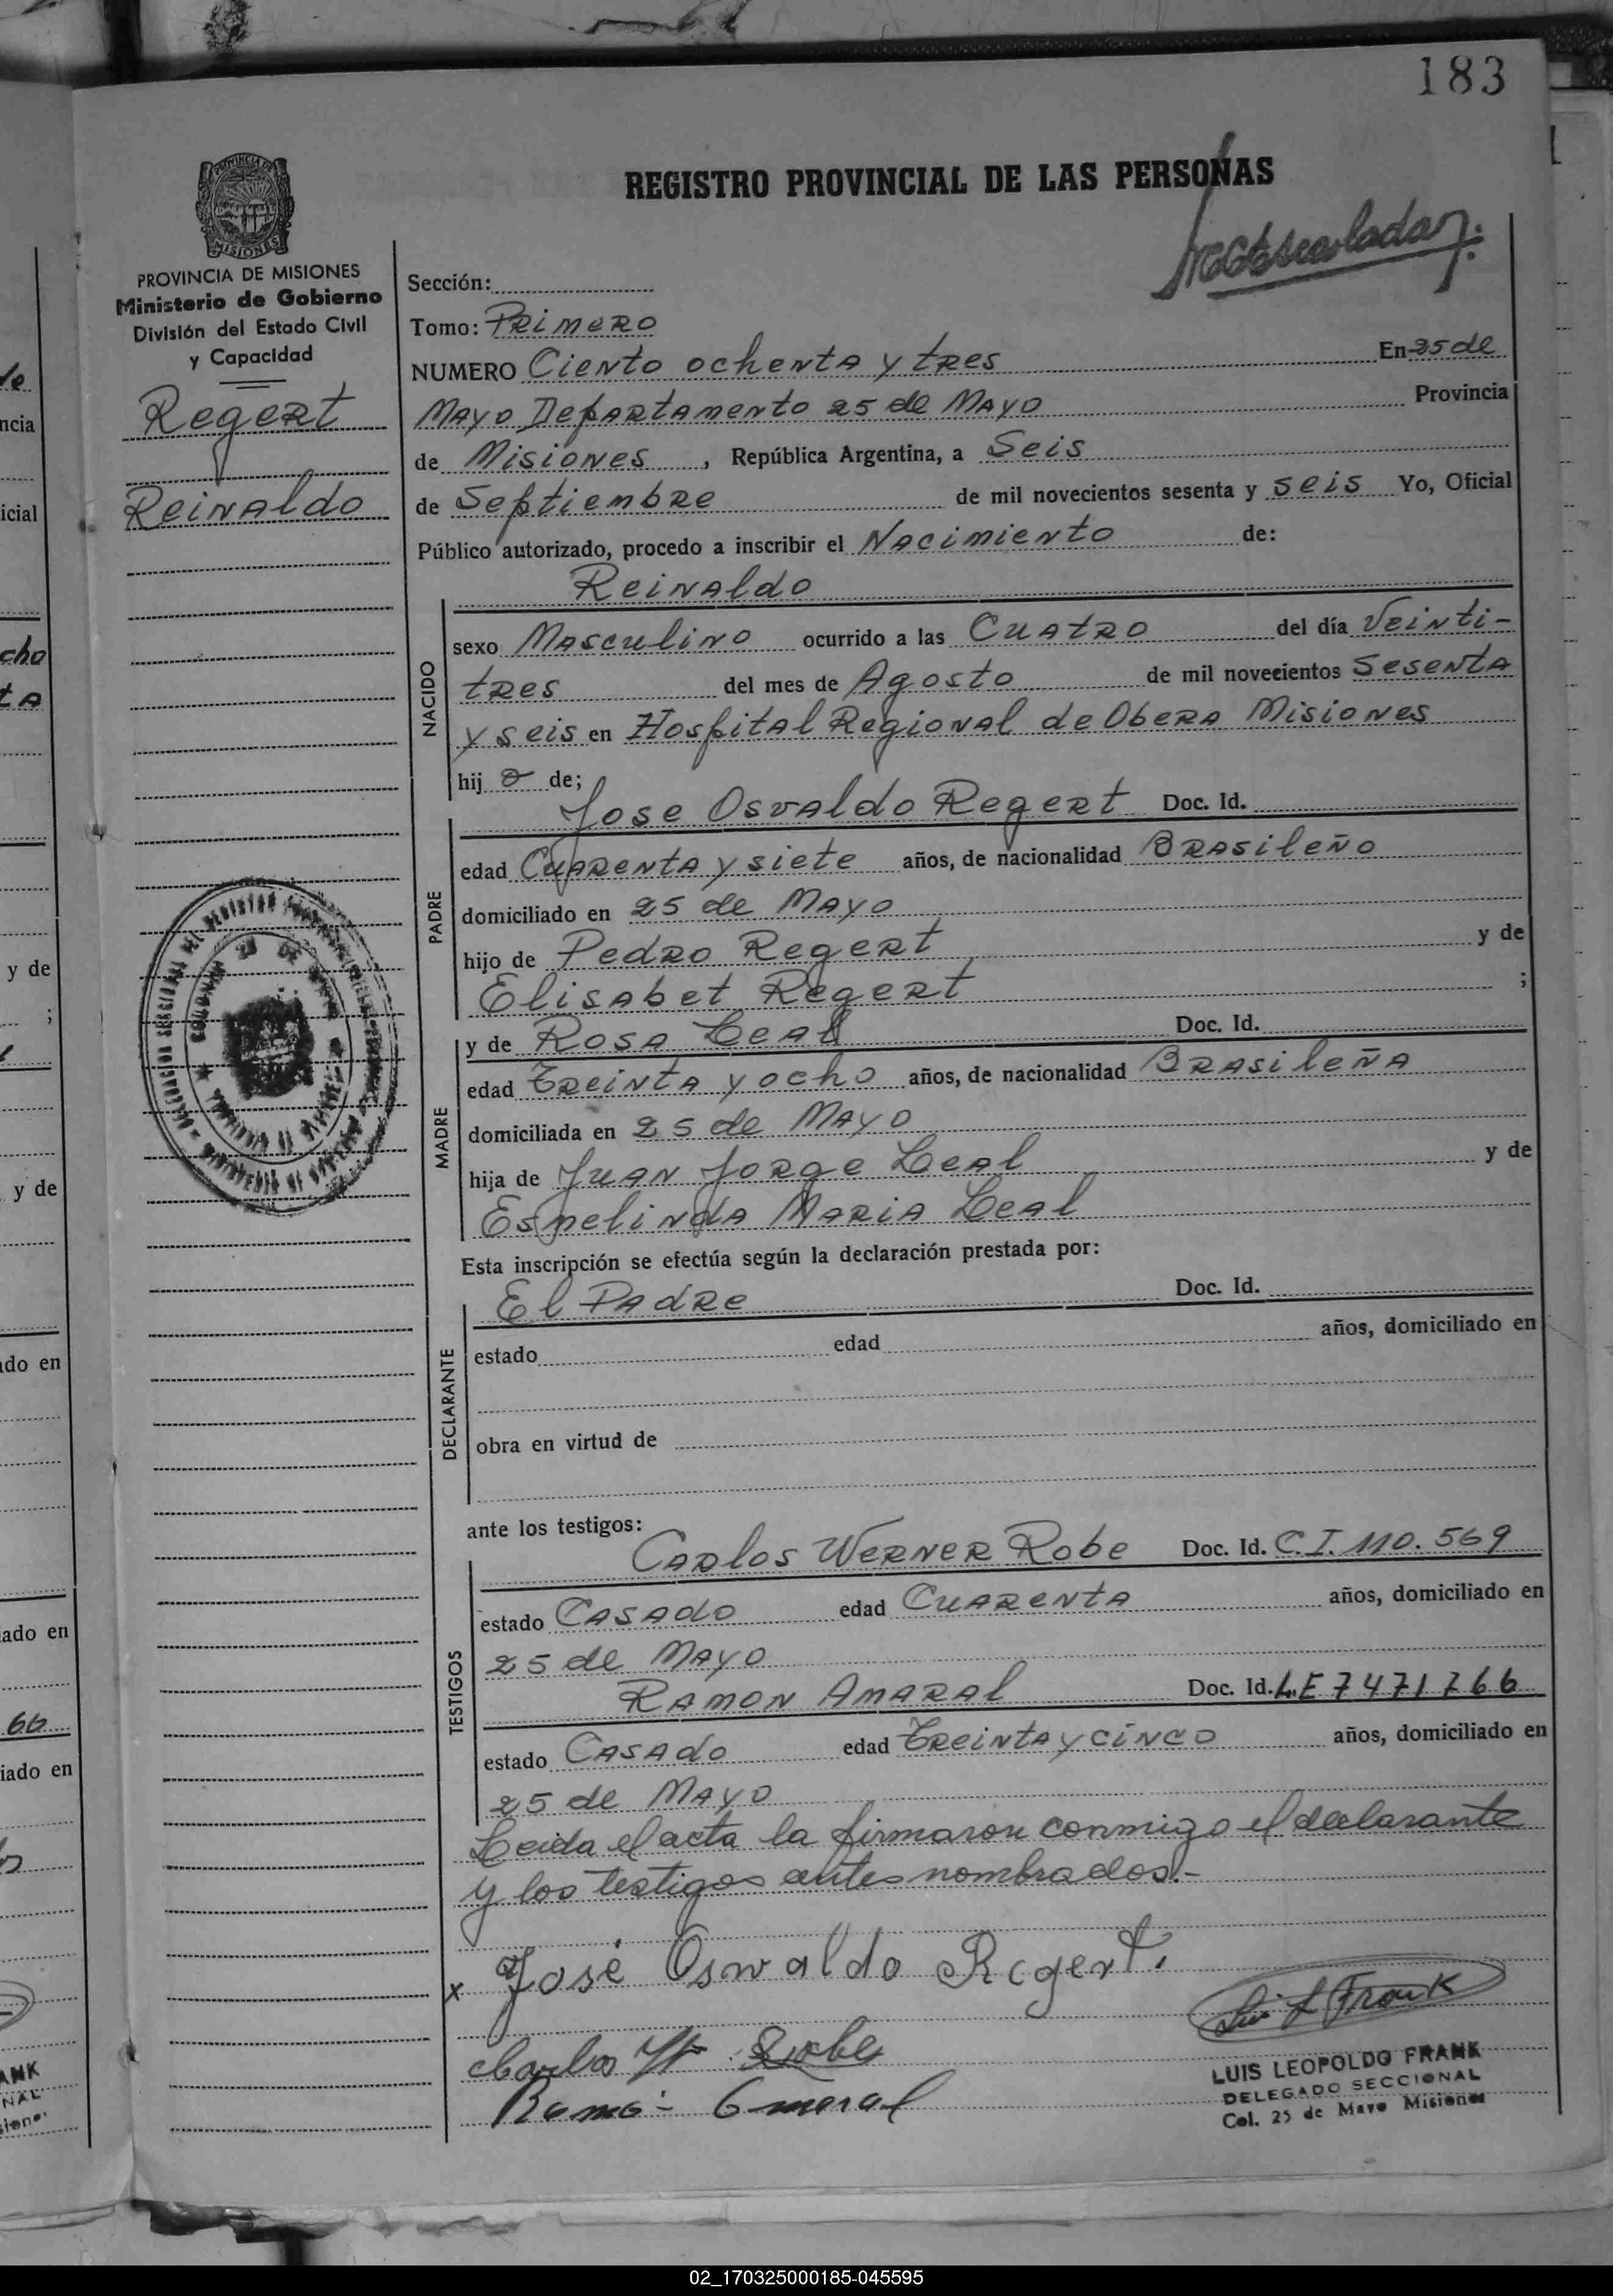 183
REGISTRO PROVINCIAL DE LAS PERSONAS
PROVINCIA DE
MISIONES
PROVINCIA DE MISIONES
Ministerio de Gobierno
División del Estado Civil
y Capacidad
Regert
Reinaldo
Sección:
Tomo: Primero
NUMERO Ciento ochenta y tres En 25 de
Mayo Departamento 25 de Mayo Provincia
de Misiones, República Argentina, a Seis
de Septiembre de mil novecientos sesenta y seis Yo, Oficial
Público autorizado, procedo a inscribir el Nacimiento de:
Reinaldo
NACIDO
sexo Masculino ocurrido a las Cuatro del día Veinti-
tres del mes de Agosto de mil novecientos Sesenta
y seis en Hospital Regional de Obera Misiones
hij o de;
Jose Osvaldo Regert Doc. Id.
PADRE
edad Cuarenta y siete años, de nacionalidad Brasileño
domiciliado en 25 de Mayo
hijo de Pedro Regert y de
Elisabet Regert ;
y de Rosa Leal Doc. Id.
MADRE
edad Treinta y ocho años, de nacionalidad Brasileña
domiciliada en 25 de Mayo
hija de Juan Jorge Leal y de
Maria Leal
Esta inscripción se efectúa según la declaración prestada por:
El Padre Doc. Id.
DECLARANTE
estado edad años, domiciliado en
obra en virtud de
ante los testigos:
Carlos Werner Robe Doc. Id. C.I. 110.569
TESTIGOS
estado Casado edad Cuarenta años, domiciliado en
25 de Mayo
Ramon Amaral Doc. Id. L.E 7471766
estado Casado edad Treinta y cinco años, domiciliado en
25 de Mayo
Leida el acta la firmaron conmigo el declarante
y los testigos antes nombrados.-
x José Oswaldo Regert.
Carlos W. Robe
Luis L Frank
LUIS LEOPOLDO FRANK
DELEGADO SECCIONAL
Col. 25 de Mayo Misiones
02_170325000185-045595